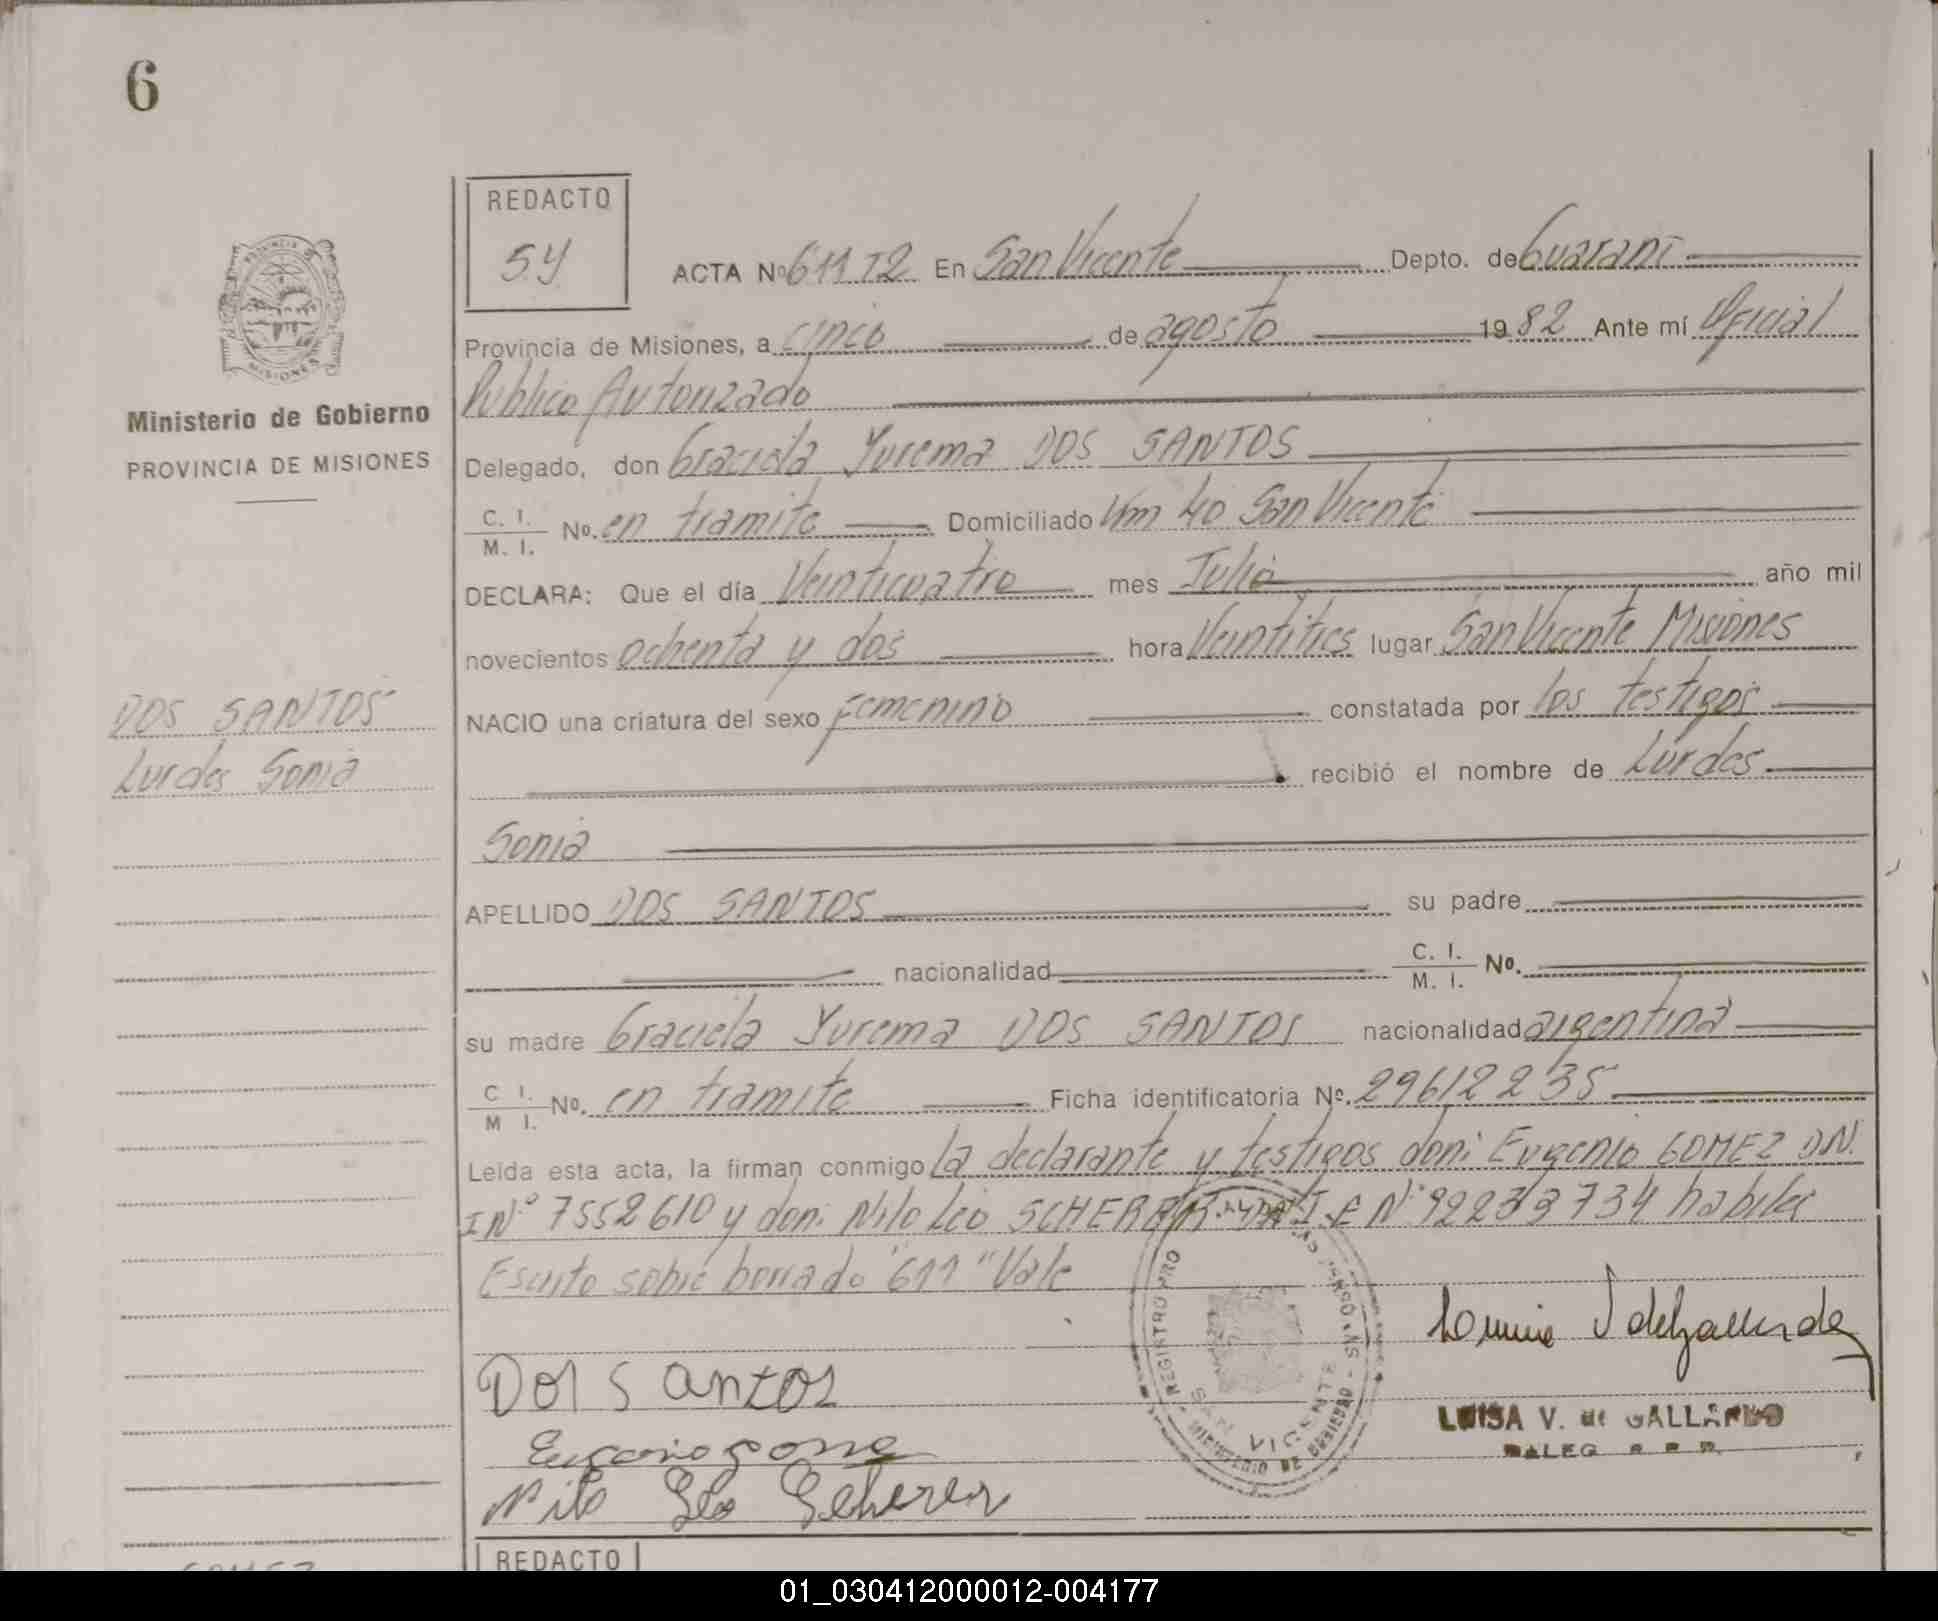 6
REDACTO
SY
ACTA Nº 611 T2 En San Vicente Depto. de Guaraní
Provincia de Misiones, a cinco de agosto 1982 Ante mí Oficial
Publico Autorizado
Ministerio de Gobierno
PROVINCIA DE MISIONES
PROVINCIA DE
MISIONES
Delegado, don Graciela Yurema DOS SANTOS
C. I.
M. I. No. en tramite Domiciliado Km 40 San Vicente
DECLARA: Que el día Veinticuatro mes Julio año mil
novecientos ochenta y dos hora Veintitres lugar San Vicente Misiones
NACIO una criatura del sexo femenino constatada por los testigos
recibió el nombre de Lurdes
Sonia
DOS SANTOS
Lurdes Sonia
APELLIDO DOS SANTOS su padre
nacionalidad C. I.
M. I. No.
su madre Graciela Yurema DOS SANTOS nacionalidad argentina
C. I.
M. I. No. en tramite Ficha identificatoria No. 29612235
Leída esta acta, la firman conmigo la declarante y testigos don: Eugenio GOMEZ DN.
I Nº 7552610 y don: Nilo Leo SCHERER I.E Nº 92233734 habiles
Escrito sobre borrado "611" Vale
REGISTRO PRO
SAN VICENTE
MINISTERIO DE GOBIERNO
Dos Santos
Eugenio gome
Nilo Leo Scherer
LUISA V. de GALLARDO
DALEG
REDACTO
GOMEZ
01_030412000012-004177